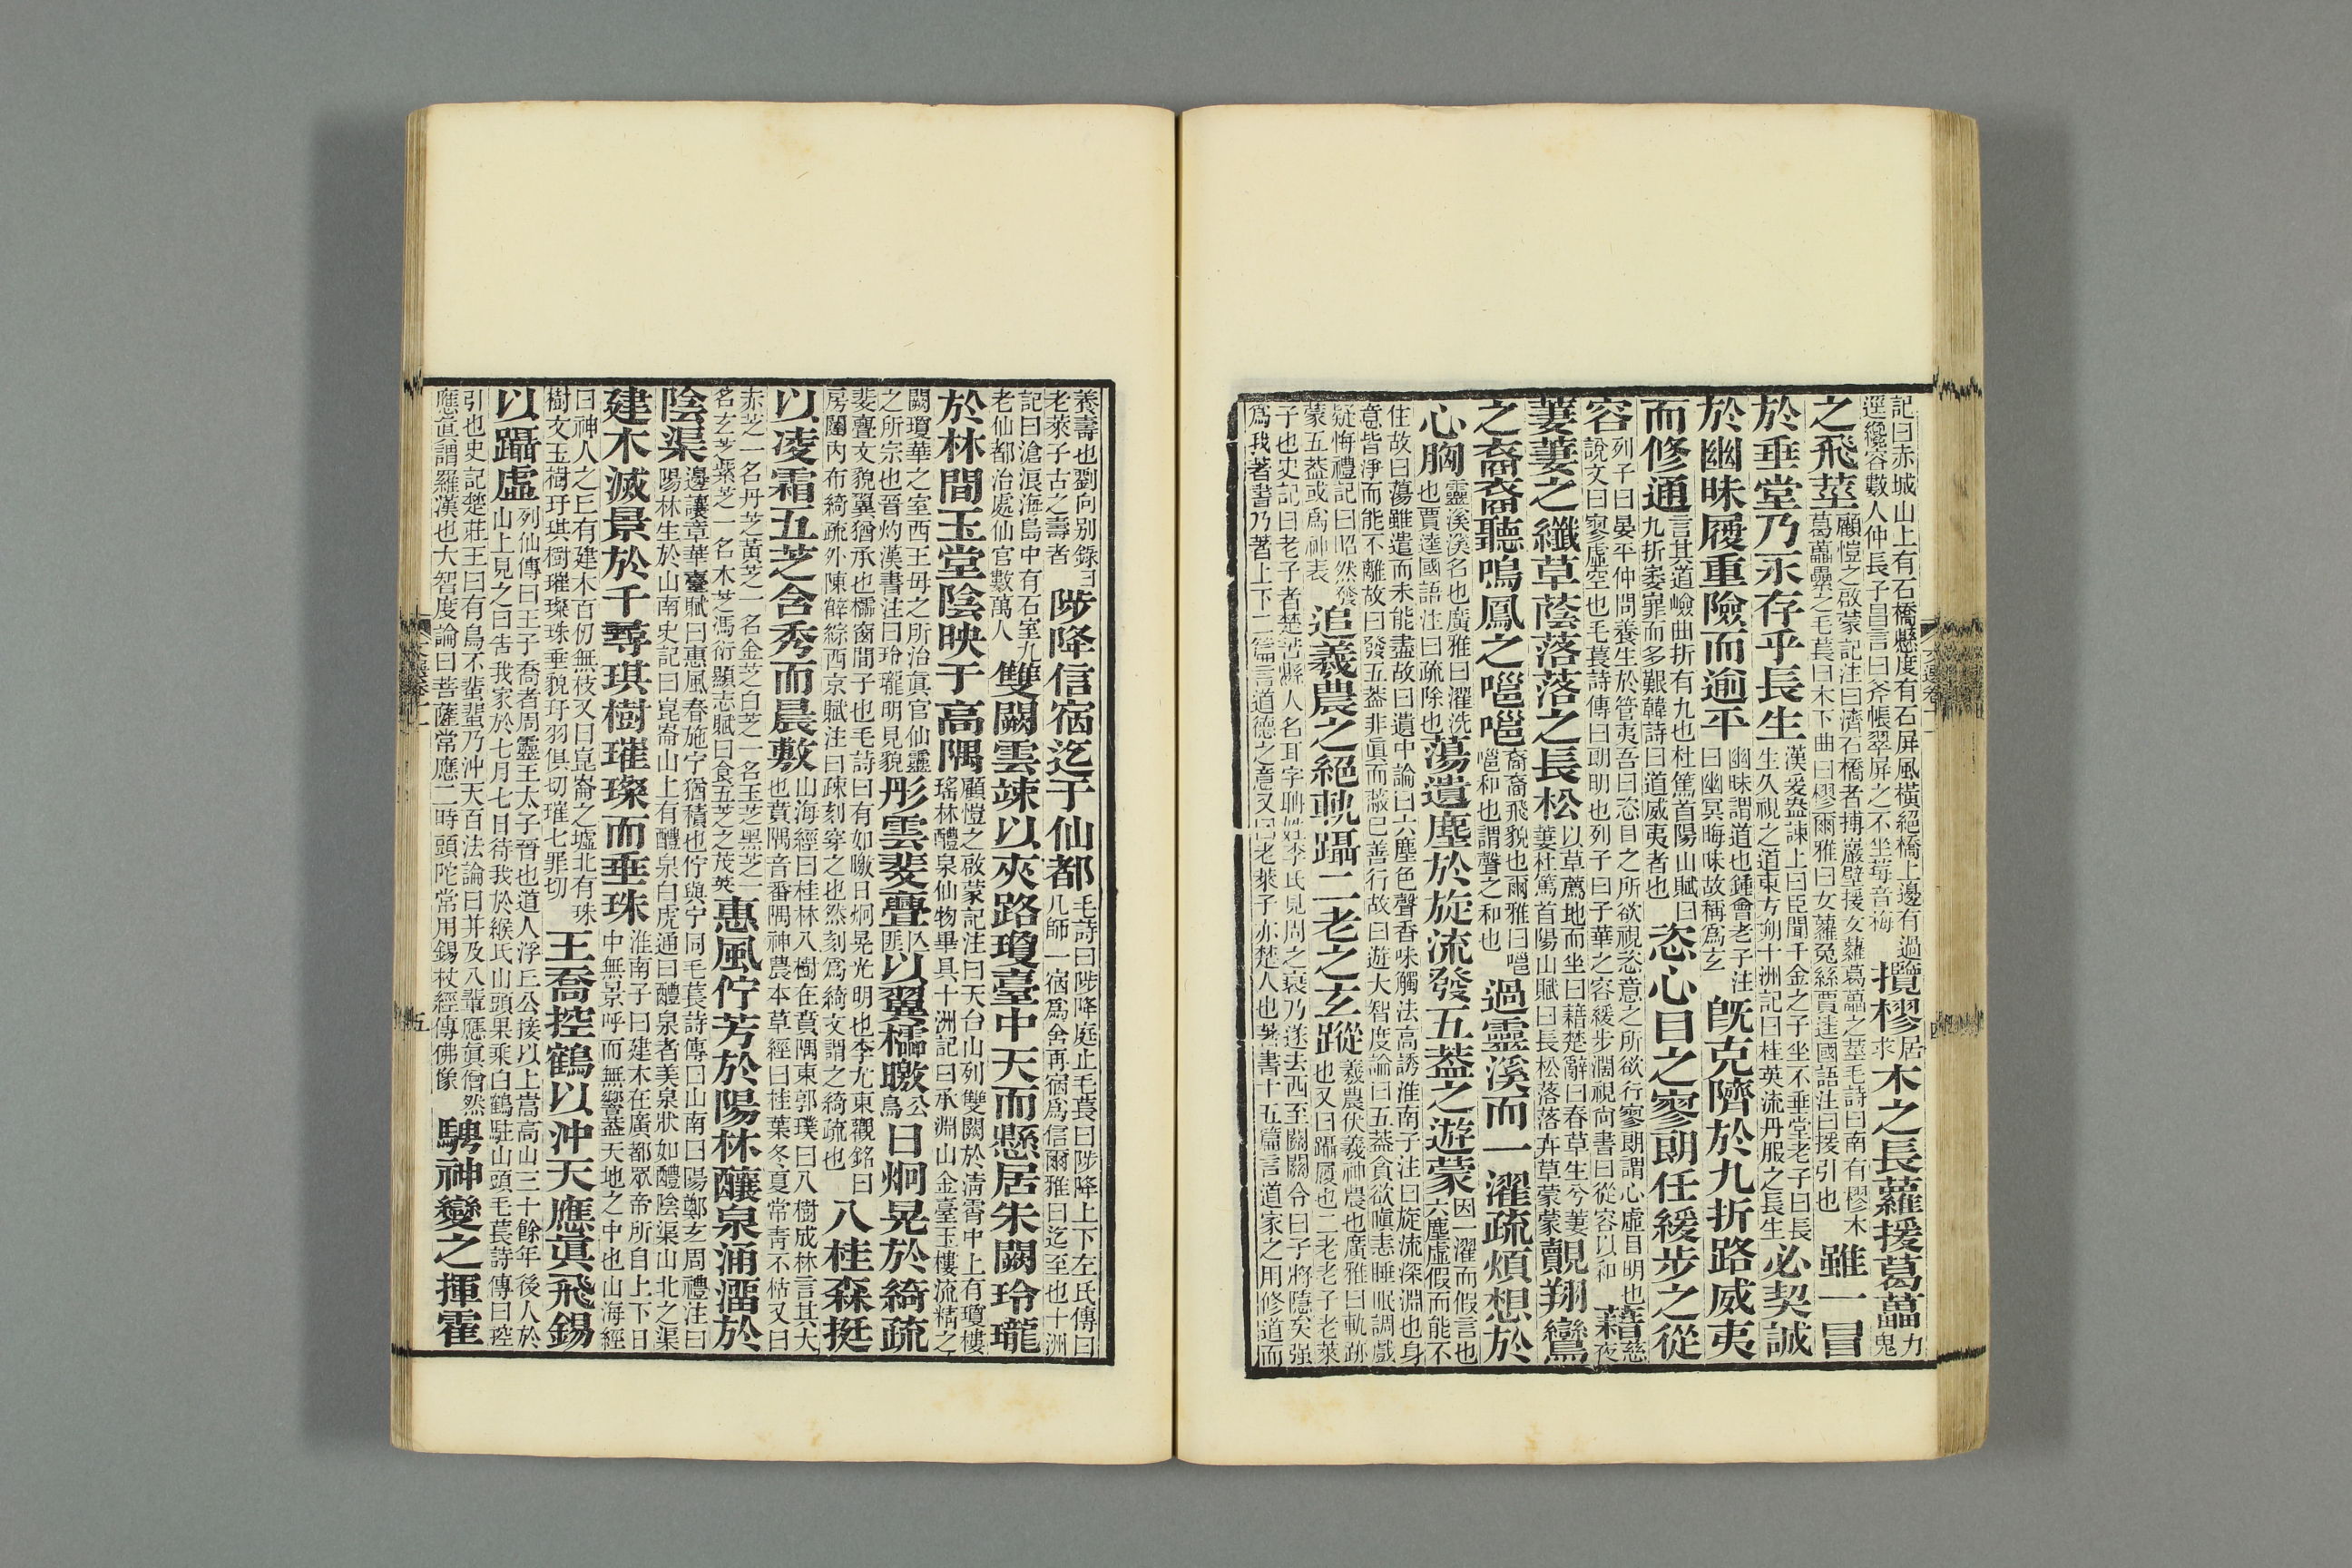 記曰赤城山上有石橋懸度有石屏風橫絕橋上邊有過
逕纔容數人仲長子昌言曰斧帳翠屏之不坐莓音梅
攬樛居求木之長蘿援葛藟力鬼
之飛莖
顧愷之啟蒙記注曰濟石橋者搏巖壁援女蘿葛藟之莖毛詩曰南有樛木
葛藟纍之毛萇曰木下曲曰樛爾雅曰女蘿兔絲賈逵國語注曰援引也
雖一冒
於垂堂乃永存乎長生
漢爰盎諫上曰臣聞千金之子坐不垂堂老子曰長
生久視之道東方朔十洲記曰桂英流丹服之長生
必契誠
於幽昧履重險而逾平
幽昧謂道也鍾會老子注
曰幽冥晦昧故稱爲玄
旣克隮於九折路威夷
而修通
言其道嶮曲折有九也杜篤首陽山賦曰
九折委而多艱韓詩曰道威夷者也
恣心目之寥朗任緩步之從
容
列子曰晏平仲問養生於管夷吾曰恣目之所欲視恣意之所欲行寥朗謂心虛目明也
說文曰寥虛空也毛萇詩傳曰朗明也列子曰子華之容緩步濶視尚書曰從容以和
藉慈夜
萋萋之纖草蔭落落之長松
以草薦地而坐曰藉楚辭曰春草生兮萋
萋杜篤首陽山賦曰長松落落卉草蒙蒙
覿翔鸞
之裔裔聽鳴鳳之嗈嗈
裔裔飛貌也爾雅曰嗈
嗈和也謂聲之和也
過靈溪而一濯疏煩想於
心胸
靈溪溪名也廣雅曰濯洗
也賈逵國語注曰疏除也
蕩遺塵於旋流發五蓋之遊蒙
因一濯而假言也
六塵虛假而能不
住故曰蕩雖遣而未能盡故曰遺中論曰六塵色聲香味觸法高誘淮南子注曰旋流深淵也身
意皆淨而能不離故曰發五蓋非眞而蔽已善行故曰遊大智度論曰五蓋貪欲瞋恚睡眠調戲
疑悔禮記曰昭然發
蒙五蓋或爲神表
追羲農之絕軌躡二老之玄蹤
羲農伏羲神農也廣雅曰軌跡
也又曰躡履也二老老子老萊
子也史記曰老子者楚苦縣人名耳字聃姓李氏見周之衰乃遂去西至關關令曰子將隱矣强
爲我著書乃著上下二篇言道德之意又曰老萊子亦楚人也著書十五篇言道家之用修道而
養壽也劉向別錄曰
老萊子古之壽者
陟降信宿迄于仙都
毛詩曰陟降庭止毛萇曰陟降上下左氏傳曰
凡師一宿爲舍再宿爲信爾雅曰迄至也十洲
記曰滄浪海島中有石室九
老仙都治處仙官數萬人
雙闕雲竦以夾路瓊臺中天而懸居朱闕玲瓏
於林間玉堂陰映于高隅
顧愷之啟蒙記注曰天台山列雙闕於淸霄中上有瓊樓
瑤林醴泉仙物畢具十洲記曰承淵山金臺玉樓流精之
闕瓊華之室西王母之所治眞官仙靈
之所宗也晉灼漢書注曰玲瓏明見貌
彤雲斐亹亡匪以翼櫺曒公鳥日炯晃於綺疏
斐亹文貌翼猶承也櫺窗間子也毛詩曰有如曒日炯晃光明也李尤東觀銘曰
房闥內布綺疏外陳薛綜西京賦注曰疎刻穿之也然刻爲綺文謂之綺疏也
八桂森挺
以凌霜五芝含秀而晨敷
山海經曰桂林八樹在賁隅東郭璞曰八樹成林言其大
也賁隅音番隅神農本草經曰桂葉冬夏常靑不枯又曰
赤芝一名丹芝黃芝一名金芝白芝一名玉芝黑芝一
名玄芝紫芝一名木芝馮衍顯志賦曰食五芝之茂英
惠風佇芳於陽林醴泉涌溜於
陰渠
邊讓章華臺賦曰惠風春施佇猶積也佇與宁同毛萇詩傳曰山南曰陽鄭玄周禮注曰
陽林生於山南史記曰崑崙山上有醴泉白虎通曰醴泉者美泉狀如醴陰渠山北之渠
建木滅景於千尋琪樹璀璨而垂珠
淮南子曰建木在廣都眾帝所自上下日
中無景呼而無響蓋天地之中也山海經
曰神人之丘有建木百仞無枝又曰崑崙之墟北有珠
樹文玉樹玗琪樹璀璨珠垂貌玗羽俱切璀七罪切
王喬控鶴以沖天應眞飛錫
以躡虛
列仙傳曰王子喬者周靈王太子晉也道人浮丘公接以上嵩高山三十餘年後人於
山上見之曰告我家於七月七日待我於緱氏山頭果乘白鶴駐山頭毛萇詩傳曰控
引也史記楚莊王曰有鳥不蜚蜚乃沖天百法論曰并及八輩應眞僧然
應眞謂羅漢也大智度論曰菩薩常應二時頭陀常用錫杖經傳佛像
騁神變之揮霍
文選卷十一
四
文選卷十一
五